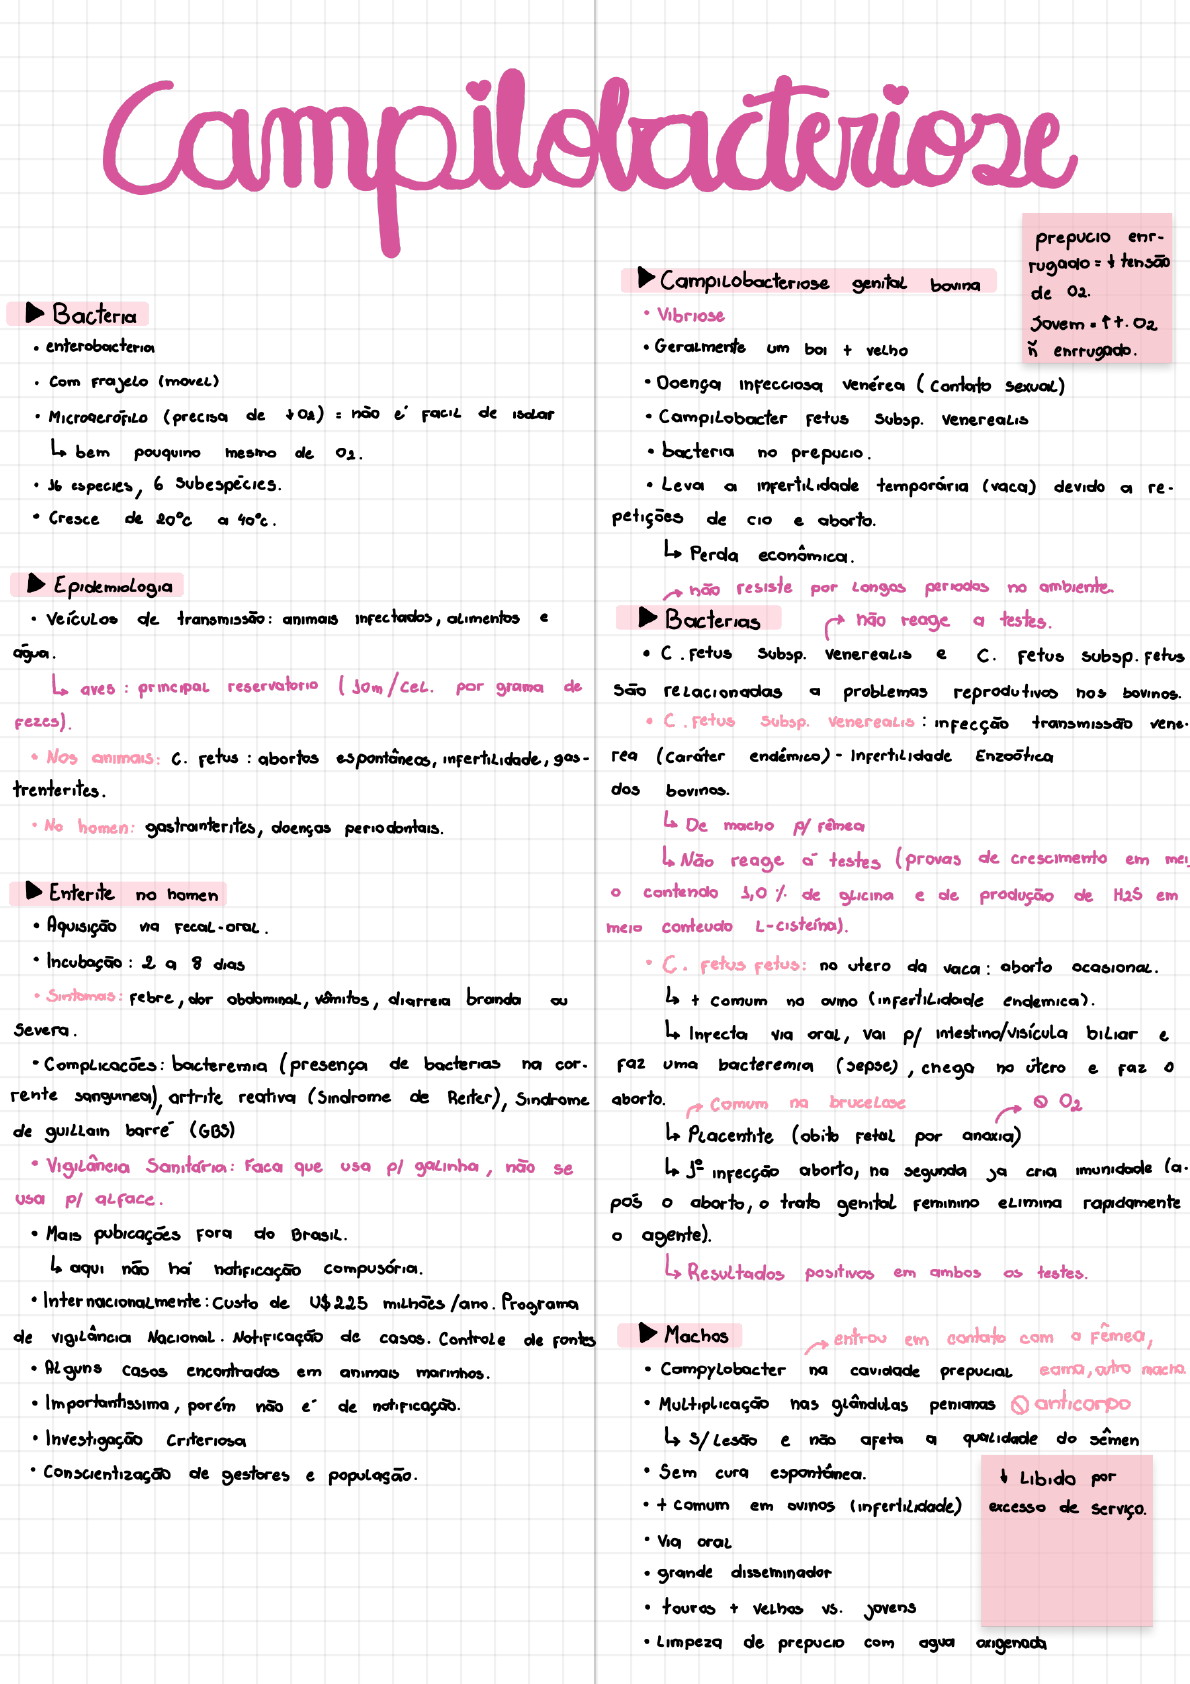 Campilobacteriose
▶ Bacteria
• enterobacteria
• Com frajelo (movel)
• Microaerófilo (precisa de ↓O2) = não é facil de isolar
↳ bem pouquino mesmo de O2.
• 16 especies, 6 subespécies.
• Cresce de 20°c a 40°c.
▶ Epidemiologia
• Veículos de transmissão: animais infectados, alimentos e
água.
↳ aves: principal reservatorio (10m/cel. por grama de
fezes).
• Nos animais: C. fetus: abortos espontâneos, infertilidade, gas-
trenterites.
• No homen: gastrointerites, doenças periodontais.
▶ Enterite no homen
• Aquisição via fecal-oral.
• Incubação: 2 a 8 dias
• Sintomas: febre, dor abdominal, vômitos, diarreia branda ou
severa.
• Complicacões: bacteremia (presença de bacterias na cor-
rente sanguinea), artrite reativa (Sindrome de Reiter), Sindrome
de guillain barré (GBS)
• Vigilância Sanitária: Faca que usa p/ galinha, não se
usa p/ alface.
• Mais pubicações fora do Brasil.
↳ aqui não há notificação compusória.
• Internacionalmente: Custo de U$225 milhões/ano. Programa
de vigilância Nacional. Notificação de casos. Controle de fontes
• Alguns casos encontrados em animais marinhos.
• Importantissima, porém não é de notificação.
• Investigação Criteriosa
• Conscientização de gestores e população.
prepucio enr-
rugado = ↓ tensão
de O2.
Jovem = ↑ t. O2
ñ enrrugado.
▶ Campilobacteriose genital bovina
• Vibriose
• Geralmente um boi + velho
• Doença infecciosa venérea (Contato sexual)
• Campilobacter fetus subsp. venerealis
• bacteria no prepucio.
• Leva a infertilidade temporária (vaca) devido a re-
petições de cio e aborto.
↳ Perda econômica.
↱ não resiste por longos periodos no ambiente.
▶ Bacterias ↱ não reage a testes.
• C. fetus subsp. venerealis e C. fetus subsp. fetus
são relacionadas a problemas reprodutivos nos bovinos.
• C. fetus subsp. venerealis: infecção transmissão vene-
rea (caráter endémico) - Infertilidade Enzoótica
dos bovinos.
↳ De macho p/ fêmea
↳ Não reage á testes (provas de crescimento em mei
o contendo 1,0 % de glicina e de produção de H2S em
meio conteudo L-cisteína).
• C. fetus fetus: no utero da vaca: aborto ocasional.
↳ + comum no ovino (infertilidade endemica).
↳ Infecta via oral, vai p/ intestino/visícula biliar e
faz uma bacteremia (sepse), chega no útero e faz o
aborto. ↱ Comum na brucelose ↱ 🚫 O2
↳ Placentite (obito fetal por anoxia)
↳ 1º infecção aborto, na segunda ja cria imunidade (a-
pós o aborto, o trato genital feminino elimina rapidamente
o agente).
↳ Resultados positivos em ambos os testes.
▶ Machos ↱ entrou em contato com a Fêmea,
• Campylobacter na cavidade prepucial cama, outro macho.
• Multiplicação nas glândulas penianas 🚫 anticorpo
↳ S/ Lesão e não afeta a qualidade do sêmen
• Sem cura espontânea.
• + comum em ovinos (infertilidade)
• Via oral
• grande disseminador
• touros + velhos vs. jovens
• Limpeza de prepucio com agua oxigenada
↓ Libido por
excesso de serviço.